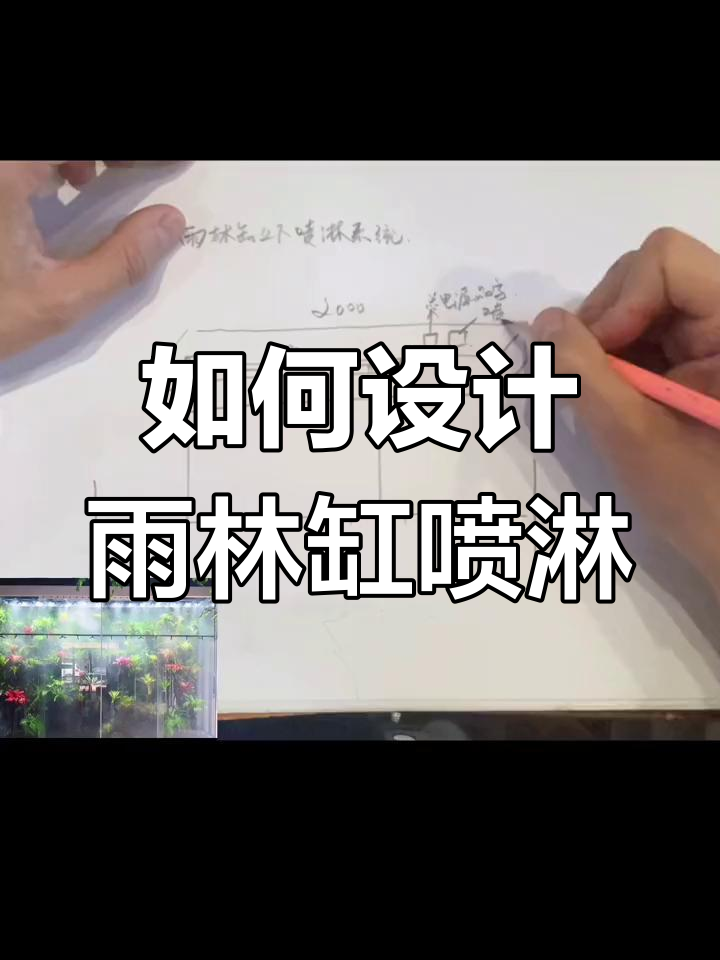 雨林缸上下喷淋系统.
2000
如何设计
雨林缸喷淋